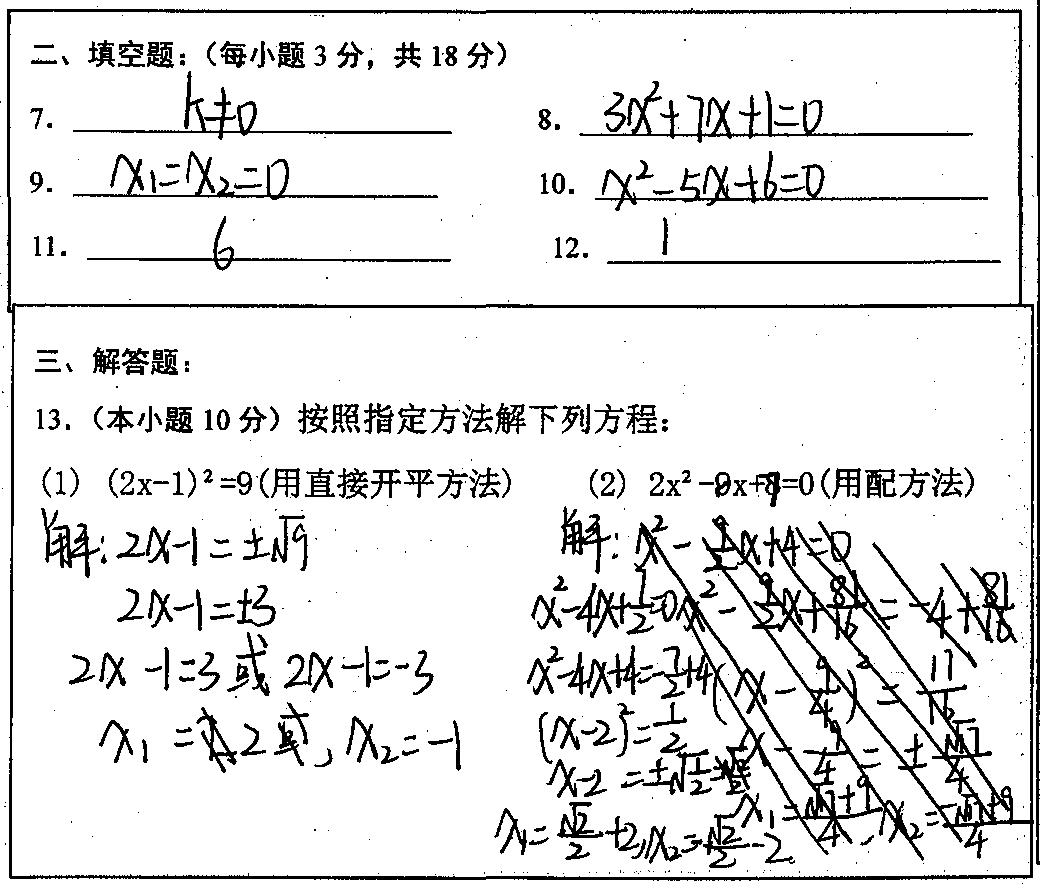 二、填空题：（每小题 3 分，共 18 分）
7. k≠0
8. 3x²+7x+1=0
9. x₁=x₂=0
10. x²-5x+6=0
11. 6
12. 1
三、解答题：
13.（本小题 10 分）按照指定方法解下列方程：
(1) (2x-1)²=9(用直接开平方法)
解：2x-1=±√9
2x-1=±3
2x-1=3或2x-1=-3
x₁=2, x₂=-1
(2) 2x²-8x+7=0(用配方法)
解：x²-9/2x+4=0
x²-9/2x+81/16=-4+81/16
(x-9/4)²=17/16
x-9/4=±√17/4
x₁=√17+9/4, x₂=-√17+9/4
x²-4x+7/2=0
x²-4x+4=-7/2+4
(x-2)²=1/2
x-2=±√1/2
x₁=√2/2+2, x₂=√2/2-2